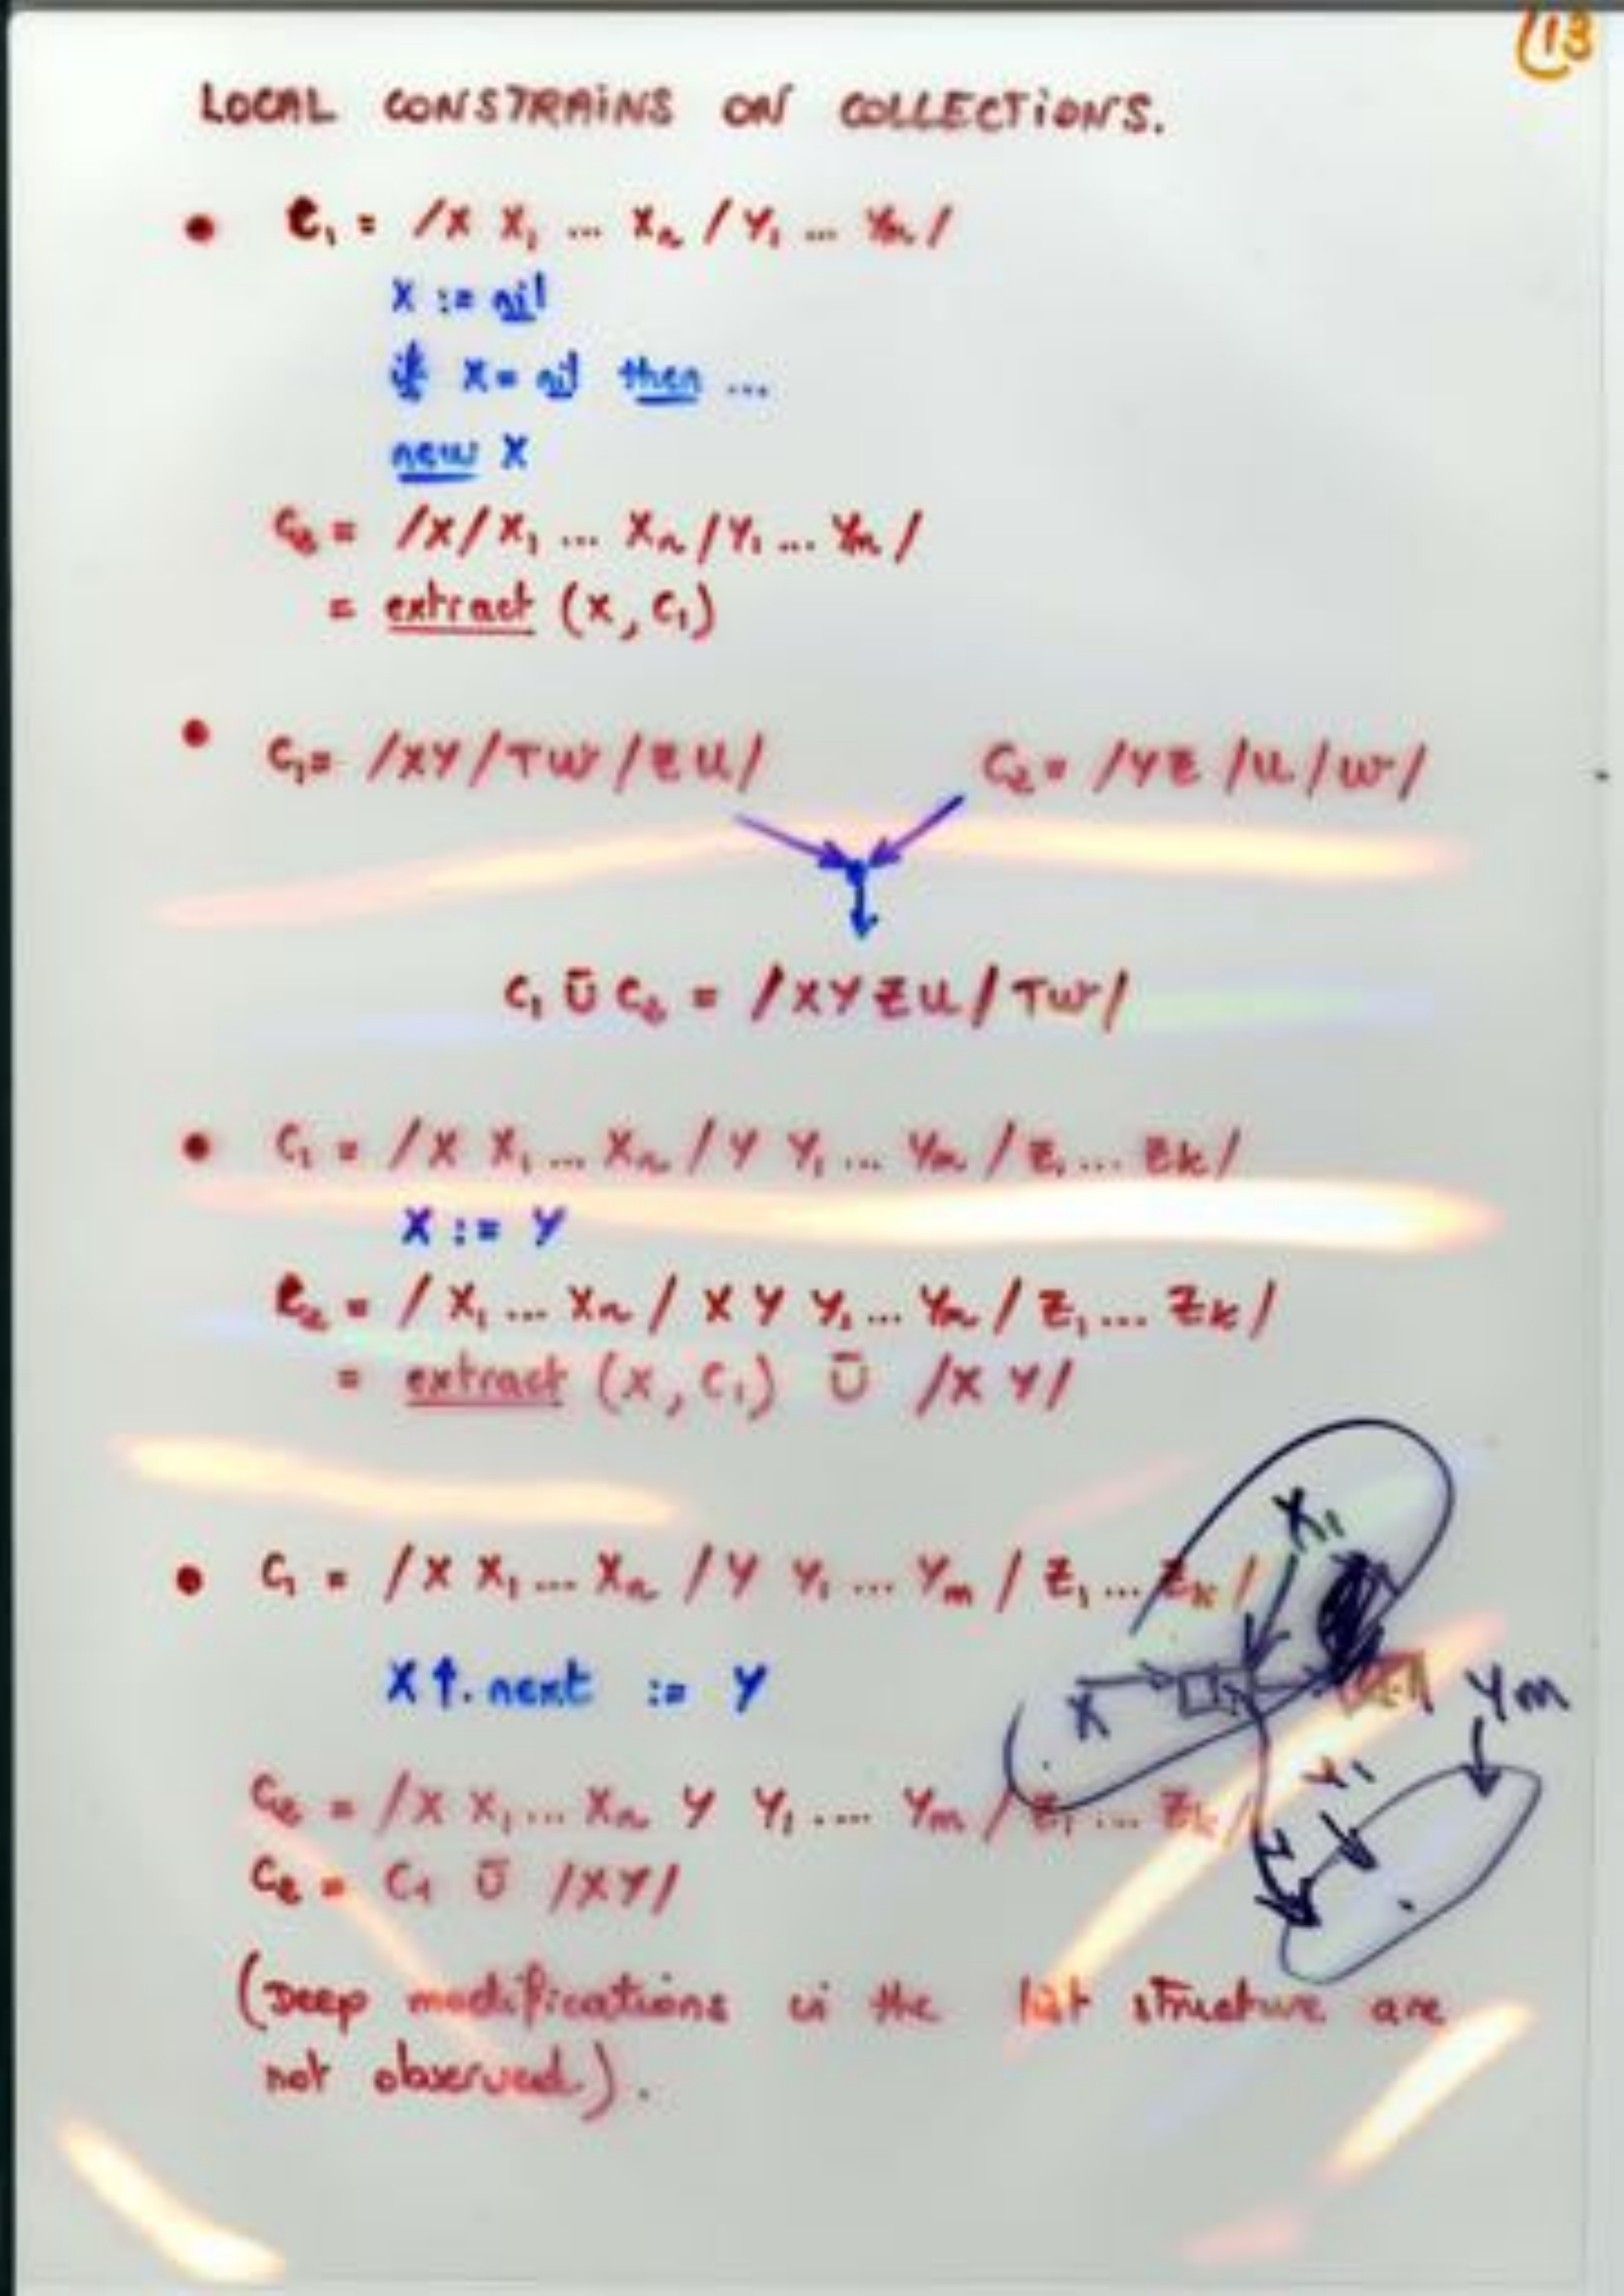 13
LOCAL CONSTRAINS ON COLLECTIONS.
• C₁ = /X X₁ ... Xₙ / Y₁ ... Yₘ /
X := nil
if X = nil then ...
new X
C₂ = /X/X₁ ... Xₙ/Y₁ ... Yₘ /
= extract (X, C₁)
• C₁ = /XY/TW/ZU/ C₂ = /YZ/U/W/
C₁ Ū C₂ = /XYZU/TW/
• C₁ = /X X₁ ... Xₙ / Y Y₁ ... Yₘ / Z₁ ... Zk/
X := Y
C₂ = / X₁ ... Xₙ / X Y Y₁ ... Yₘ / Z₁ ... Zk/
= extract (X, C₁) Ū /X Y/
X₁
• C₁ = /X X₁ ... Xₙ / Y Y₁ ... Yₘ / Z₁ ... Zk/
X↑. next := Y
X Ym
Y₁
C₂ = /X X₁ ... Xₙ Y Y₁ .... Yₘ / Z₁ ... Zk/
C₂ = C₁ Ū /XY/
(Deep modifications in the list structure are
not observed.).